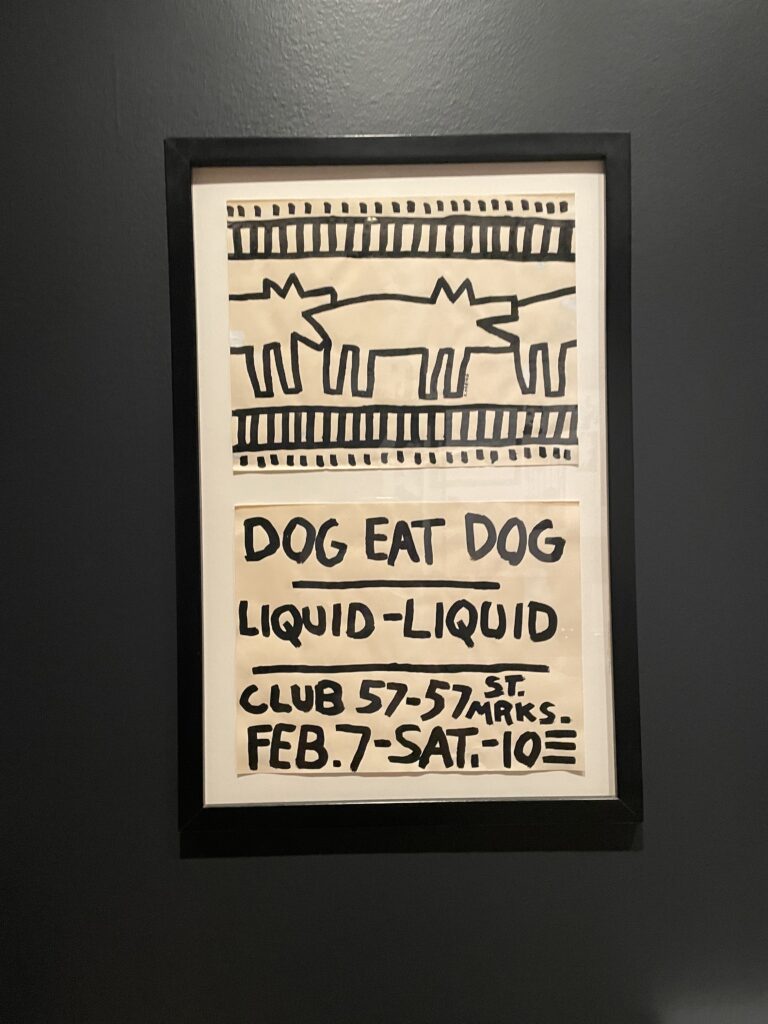 DOG EAT DOG
LIQUID-LIQUID
CLUB 57-57 ST. MRKS.
FEB. 7-SAT.-10